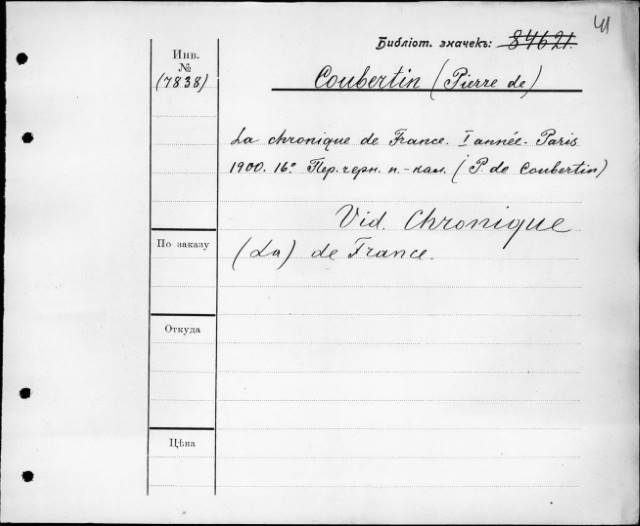 41
Библіот. значекъ: 84621.
Инв.
№
(7838)
Coubertin (Pierre de)
La chronique de France. I année. Paris
1900. 16º Пер. черн. п.-кал. (P. de Coubertin)
Vid. Chronique
(La) de France.
По заказу
Откуда
Цѣна